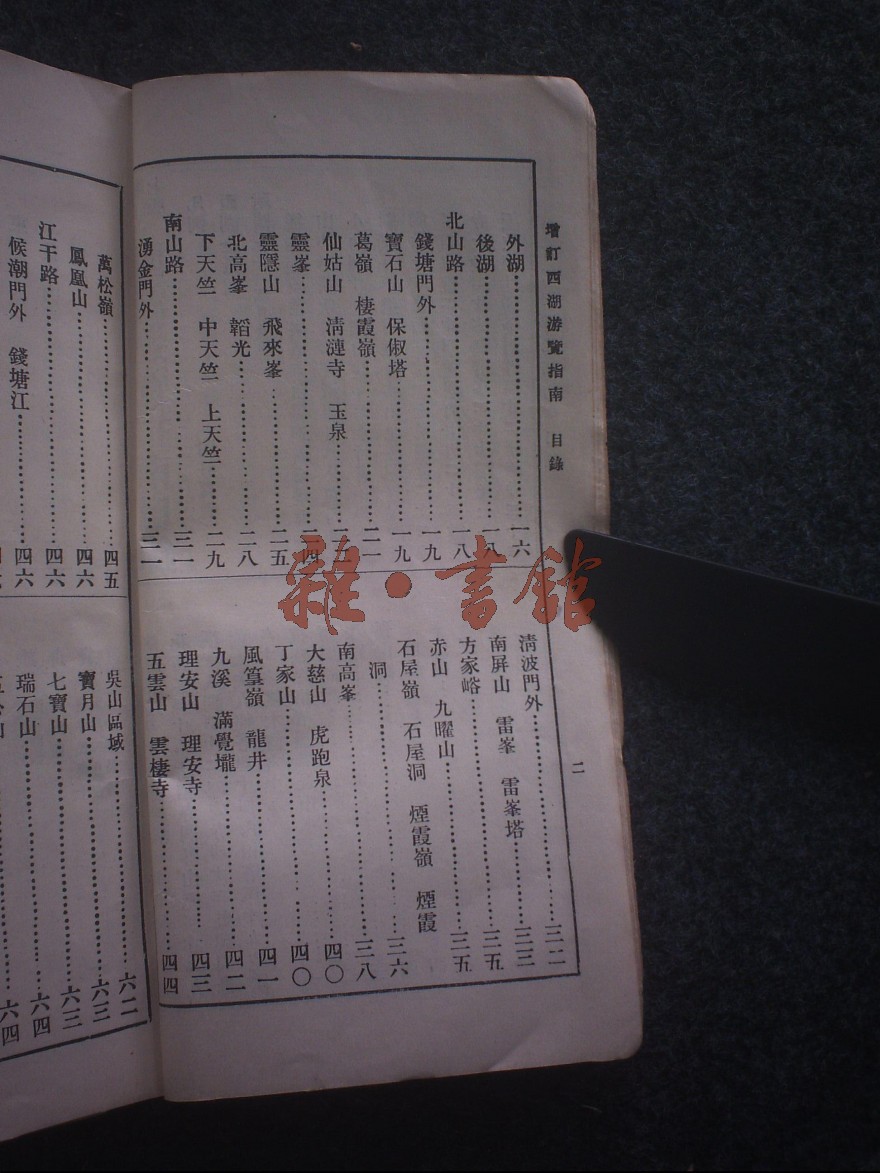 增訂西湖游覽指南 目錄
二
外湖……一六
後湖……一八
北山路……一八
錢塘門外……一九
寶石山 保俶塔……一九
葛嶺 棲霞嶺……二一
仙姑山 清漣寺 玉泉
靈峯……二四
靈隱山 飛來峯……二五
北高峯 韜光……二八
下天竺 中天竺 上天竺……二九
南山路……三一
湧金門外……三一
清波門外……三二
南屏山 雷峯 雷峯塔……三三
方家峪……三五
赤山 九曜山……三五
石屋嶺 石屋洞 煙霞嶺 煙霞
洞……三六
南高峯……三八
大慈山 虎跑泉……四〇
丁家山……四〇
風篁嶺 龍井……四一
九溪 滿覺壠……四二
理安山 理安寺……四三
五雲山 雲棲寺……四四
萬松嶺……四五
鳳凰山……四六
江干路……四六
候潮門外 錢塘江……四六
吳山區域……六二
寶月山……六三
七寶山……六三
瑞石山……六四
六四
雜·書館